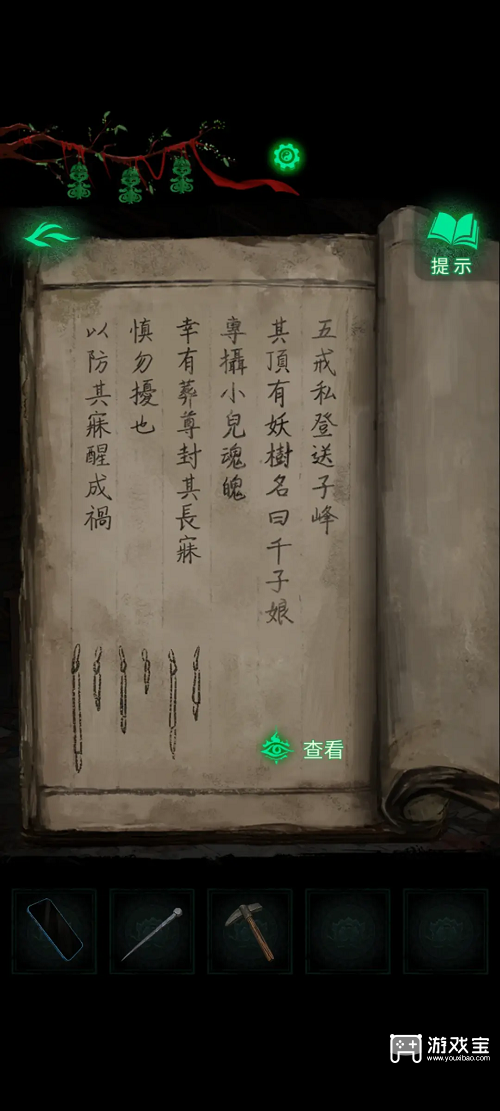 提示
五戒私登送子峰
其頂有妖樹名曰千子娘
專攝小兒魂魄
幸有葬尊封其長寐
慎勿擾也
以防其寐醒成禍
查看
游戏宝
www.youxibao.com